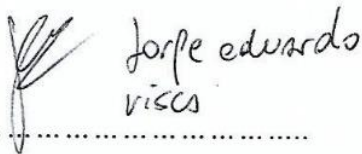 Jorge eduardo
visca